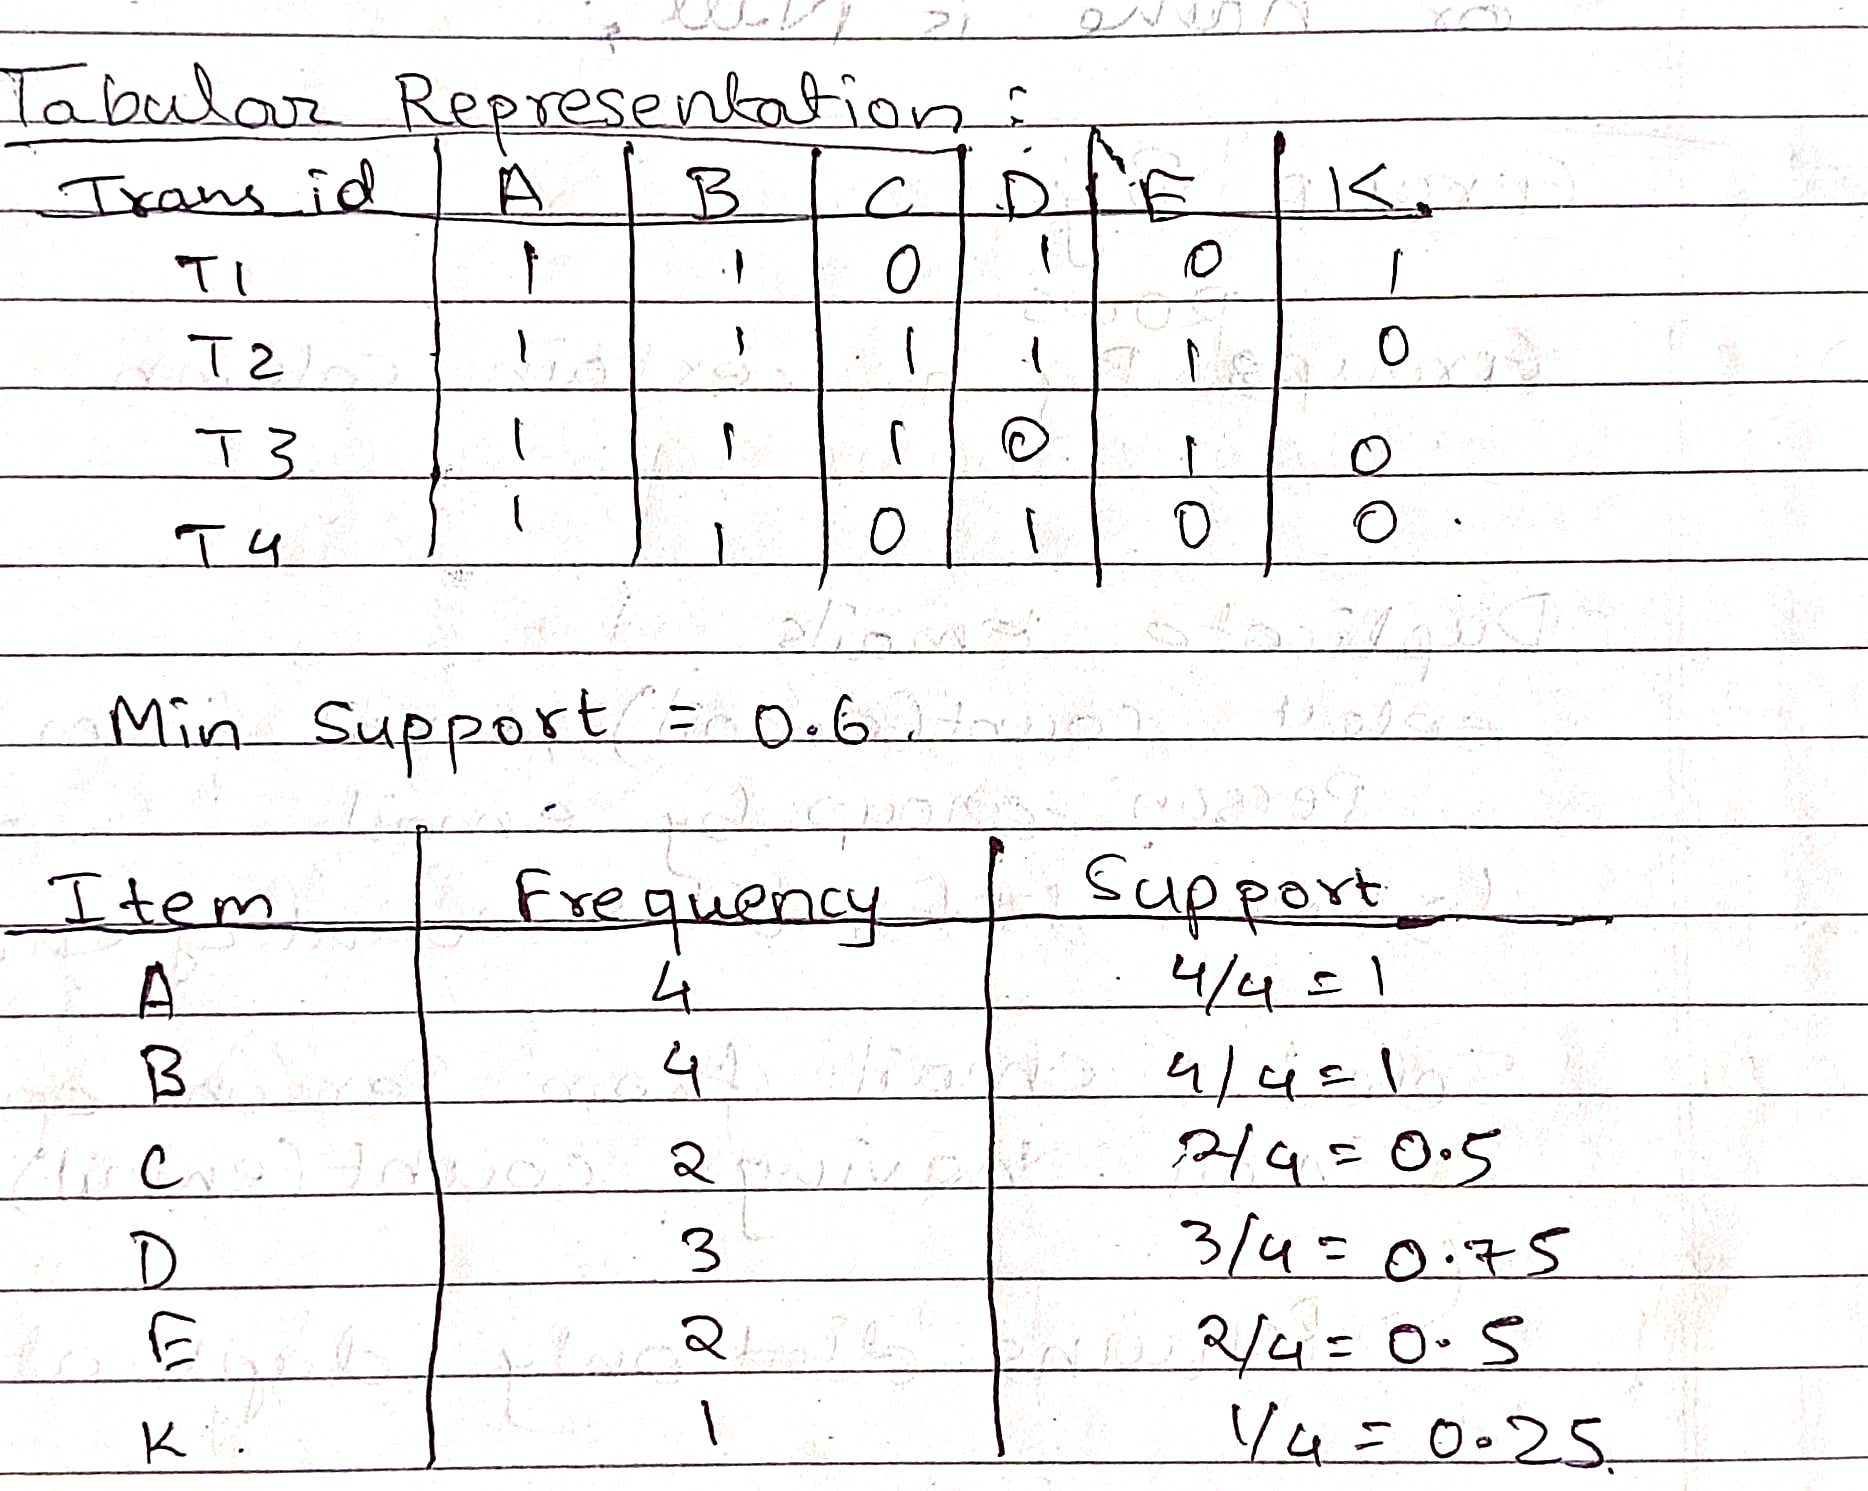 Tabular Representation :
Trans id A B C D E K.
T1 1 1 0 1 0 1
T2 1 1 1 1 1 0
T3 1 1 1 0 1 0
T4 1 1 0 1 0 0
Min Support = 0.6
Item Frequency Support
A 4 4/4 = 1
B 4 4/4 = 1
C 2 2/4 = 0.5
D 3 3/4 = 0.75
E 2 2/4 = 0.5
K 1 1/4 = 0.25